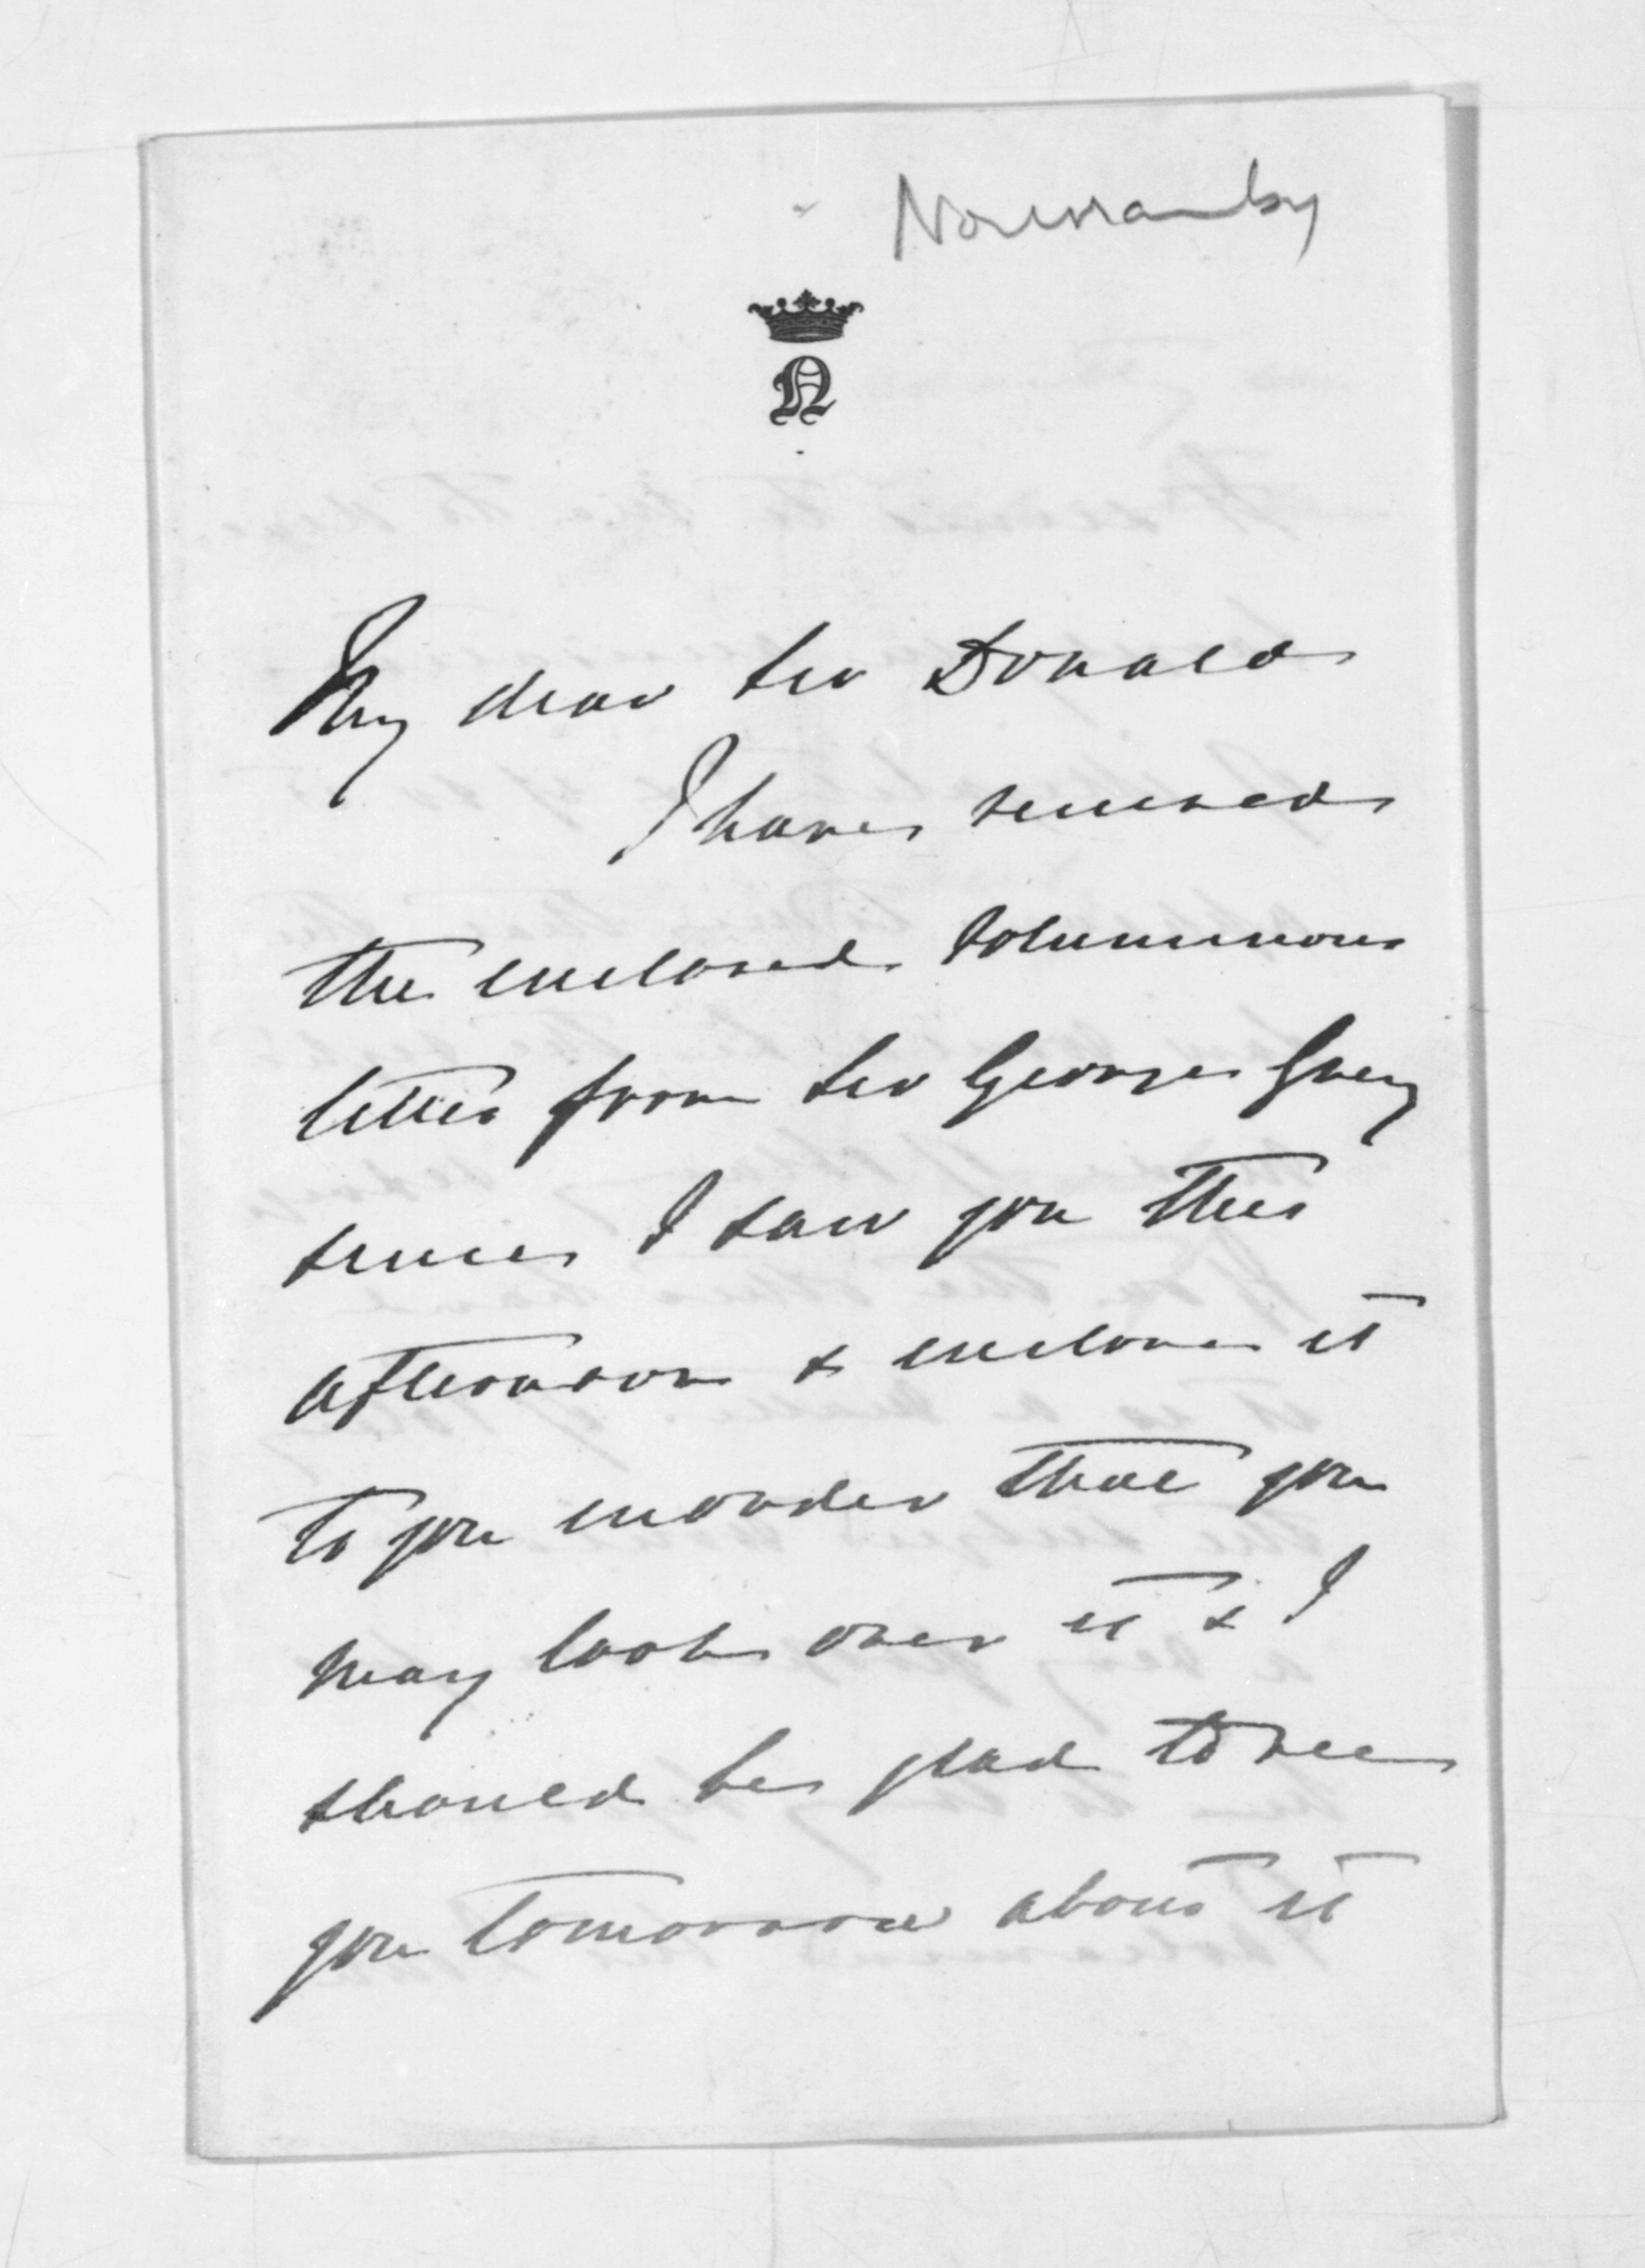 Normanby
N
My dear Sir Donald
I have received
the enclosed voluminous
letter from Sir George Grey
since I saw you this
afternoon & enclose it
to you in order that you
may look over it & I
should be glad to see
you tomorrow about it